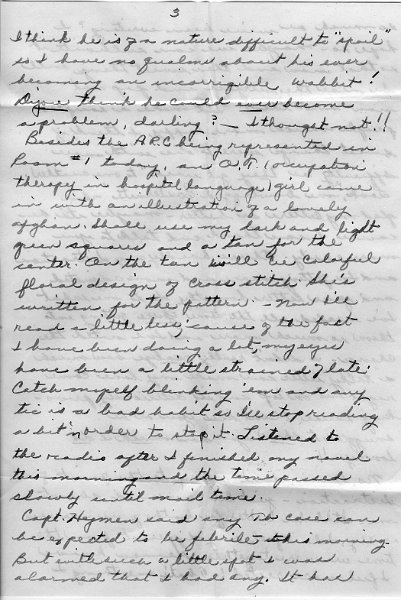 3
I think he is of a nature difficult to "spoil"
so I have no qualms about his ever
becoming an incorrigible wabbit!
D'you think he could ever become
a problem, darling? — I thought not!!
Besides the ARC being represented in
Room #1 today, an O.T. (occupation
therapy in hospital language) girl came
in with an illustration of a lovely
afghan. Shall use my dark and light
green squares and a tan for the
center. On the tan will be colorful
floral design of cross stitch. She's
written for the pattern. — Now I'll
read a little less, 'cause of the fact
I have been doing a lot, my eyes
have been a little strained of late.
Catch myself blinking 'em and any
tic is a bad habit so I'll stop reading
a bit in order to stop it. Listened to
the radio after I finished my novel
this morning and the time passed
slowly until mail time.
Capt. Heymen said any Tb case can
be expected to be febrile this morning.
But with such a little spot I was
alarmed that I had any. It has